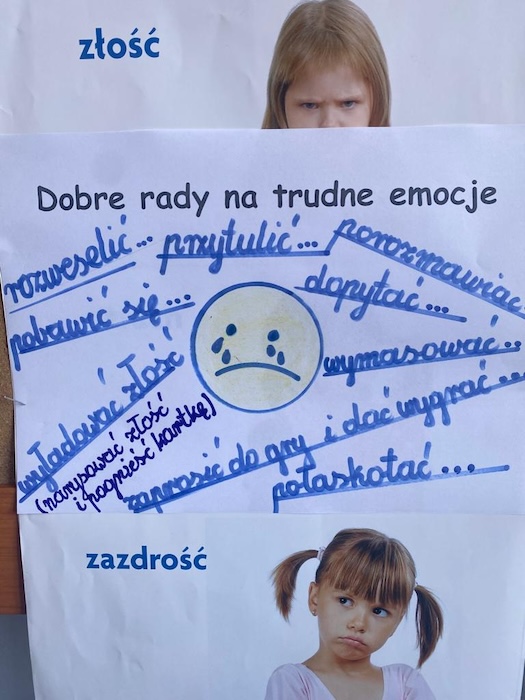 złość
Dobre rady na trudne emocje
rozweselić...
przytulić...
porozmawiać
pobawić się...
dopytać...
wymasować...
wyładować złość
(narysować złość
i pognieść kartkę)
zaprosić do gry i dać wygrać...
połaskotać...
zazdrość